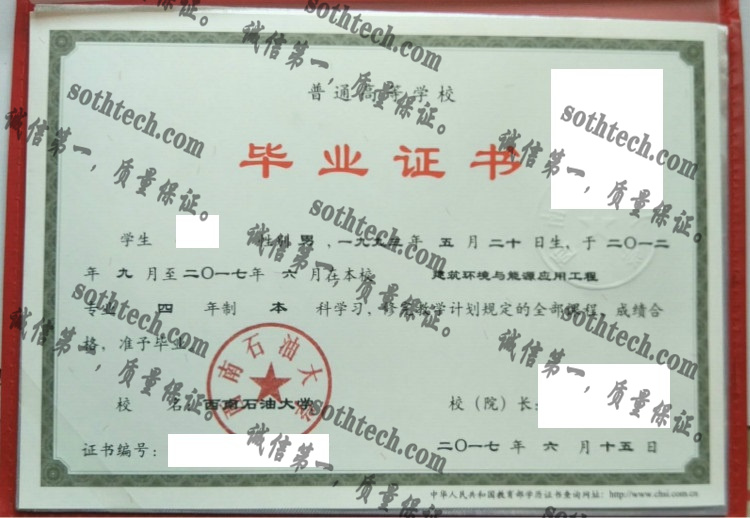 普通高等学校
毕业证书
学生 性别 男 ，一九九 年 五 月 二十 日生，于 二〇一二
年 九 月至 二〇一七 年 六 月在本校 建筑环境与能源应用工程
专业 四 年制 本 科学习，修完教学计划规定的全部课程，成绩合
格，准予毕业。
校 名：西南石油大学
校（院）长：
证书编号：
二〇一七 年 六 月 十五 日
中华人民共和国教育部学历证书查询网址：http://www.chsi.com.cn
西南石油大学
sothtech.com
诚信第一，质量保证。
sothtech.com
诚信第一，质量保证。
sothtech.com
诚信第一，质量保证。
sothtech.com
诚信第一，质量保证。
sothtech.com
诚信第一，质量保证。
sothtech.com
诚信第一，质量保证。
sothtech.com
诚信第一，质量保证。